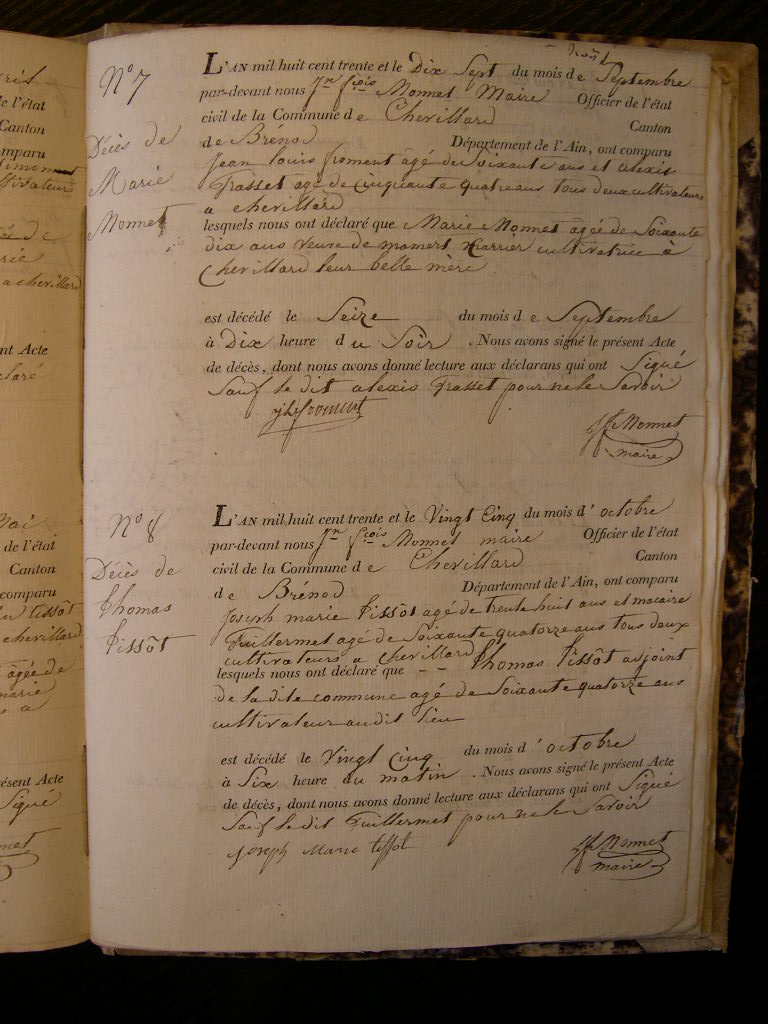 N° 7
Décès de
Marie
Monnet
L'AN mil huit cent trente et le Dix Sept du mois de Septembre
par-devant nous Jn fçois Monnet Maire Officier de l'état
civil de la Commune de Chevillard Canton
de Brénod Département de l'Ain, ont comparu
Jean louis froment âgé de Soixante ans et alexis
Trasset agé de Cinquante quatre ans tous deux cultivateurs
a chevillard
lesquels nous ont déclaré que Marie Monnet agée de Soixante
dix ans veuve de mamert Carrier cultivatrice à
Chevillard leur belle mère
est décédé le Seize du mois de Septembre
à Dix heure du Soir. Nous avons signé le présent Acte
de décès, dont nous avons donné lecture aux déclarans qui ont Signé
Sauf le dit alexis Trasset pour ne le Savoir
jls froment
jf Monnet
maire
N° 8
Décès de
Thomas
Tissôt
L'AN mil huit cent trente et le Vingt Cinq du mois d'octobre
par-devant nous Jn fçois Monnet maire Officier de l'état
civil de la Commune de Chevillard Canton
de Brénod Département de l'Ain, ont comparu
Joseph marie Tissôt agé de trente huit ans et macaire
Guillermet agé de Soixante quatorze ans tous deux
cultivateurs a Chevillard
lesquels nous ont déclaré que - - Thomas Tissôt adjoint
de la dite commune agé de Soixante quatorze ans
cultivateur audit lieu
est décédé le Vingt Cinq du mois d'octobre
à Six heure du matin. Nous avons signé le présent Acte
de décès, dont nous avons donné lecture aux déclarans qui ont Signé
Sauf le dit Guillermet pour ne le Savoir
Joseph Marie tissot
jf Monnet
maire